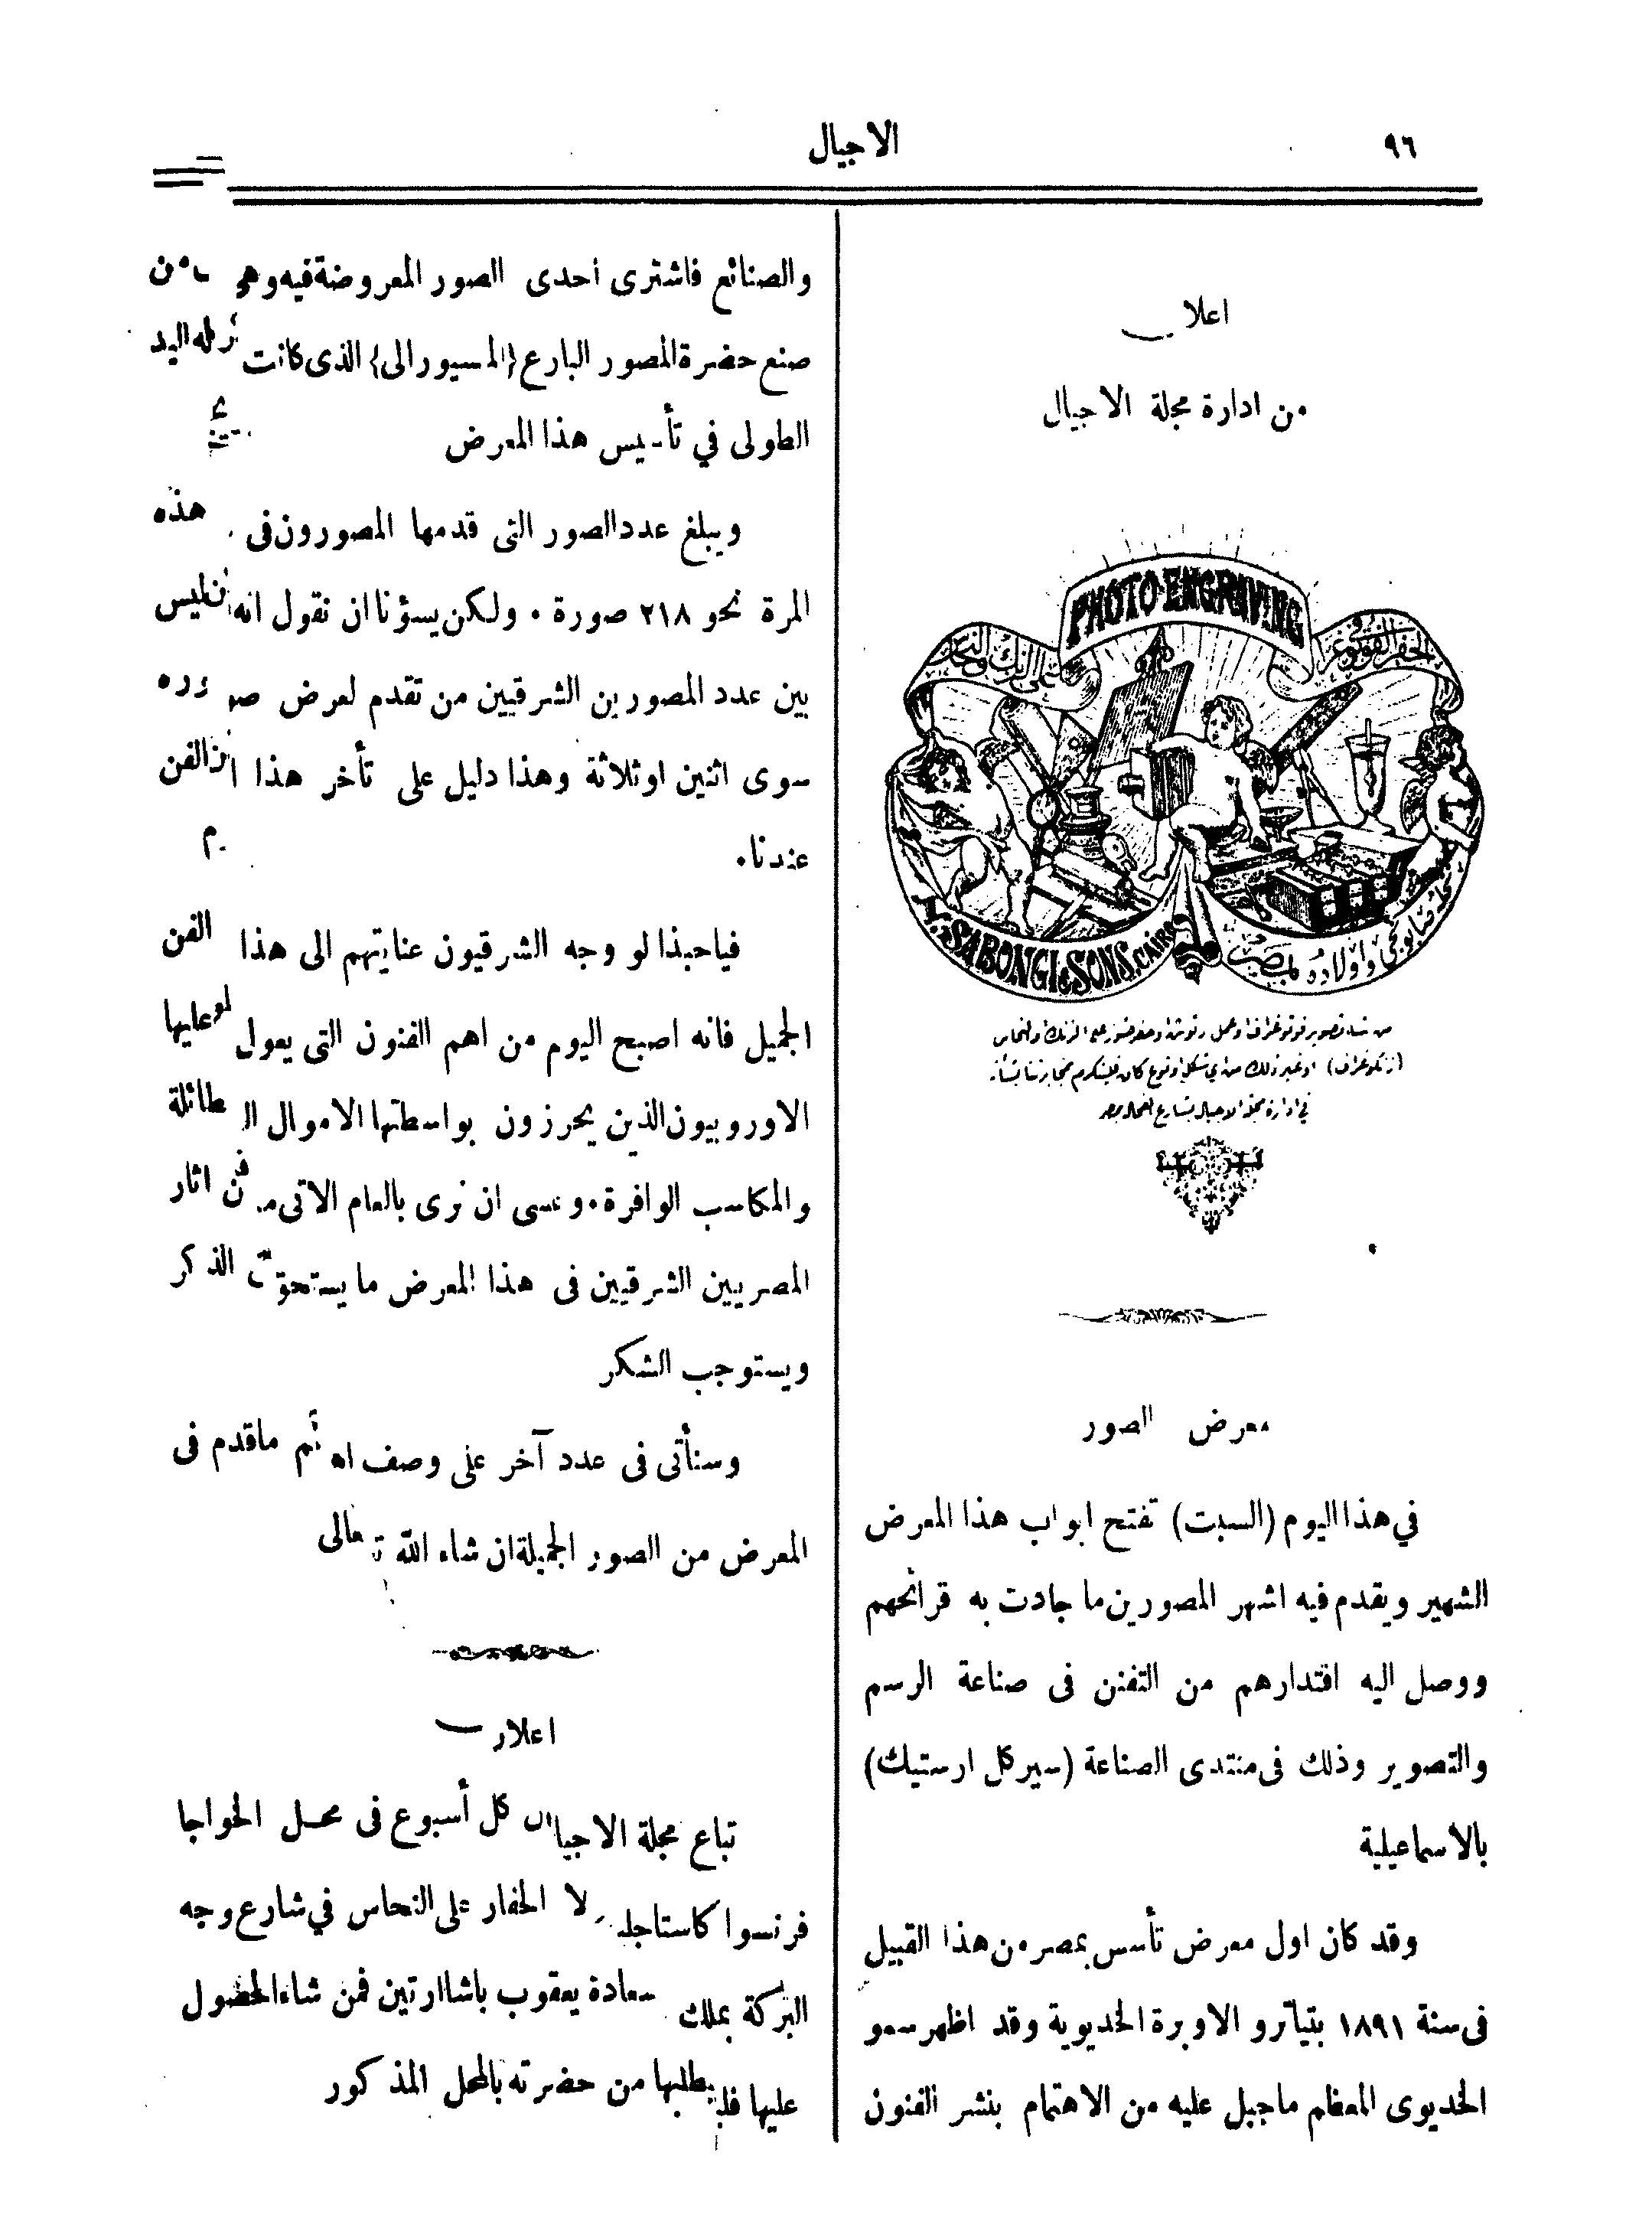 ٩٦
الاجيال
اعلان
من ادارة مجلة الاجيال
PHOTO-ENGRAVING
الحفر الفوتوغرافي
على الزنك والنحاس
Y. SABONGI & SONS. CAIRO
صابونجي واولاده بمصر
من شاء تصوير فوتوغرافا او عمل رتوش او حفر صور على الزنك والنحاس
(زنكوغراف) او غير ذلك من اي شكل او نوع كان فليتكرم بمخابرتنا بشأنه
في ادارة مجلة الاجيال بشارع الفجالة بمصر
معرض الصور
في هذا اليوم (السبت) تفتح ابواب هذا المعرض
الشهير ويقدم فيه اشهر المصورين ما جادت به قرائحهم
ووصل اليه اقتدارهم من التفنن فى صناعة الرسم
والتصوير وذلك فى منتدى الصناعة (سيركل ارستيك)
بالاسماعيلية
وقد كان اول معرض تأسس بمصر من هذا القبيل
فى سنة ١٨٩١ بتياترو الاوبرة الخديوية وقد اظهر سمو
الخديوى المعظم ما جبل عليه من الاهتمام بنشر الفنون
والصنائع فاشترى احدى الصور المعروضة فيه وهي من
صنع حضرة المصور البارع (المسيو رالى) الذى كانت له اليد
الطولى في تأسيس هذا المعرض
ويبلغ عدد الصور التى قدمها المصورون فى هذه
المرة نحو ٢١٨ صورة ٠ ولكن يسؤنا ان نقول انه ليس
بين عدد المصورين الشرقيين من تقدم لعرض صوره
سوى اثنين او ثلاثة وهذا دليل على تأخر هذا الفن
عندنا٠
فياحبذا لو وجه الشرقيون عنايتهم الى هذا الفن
الجميل فانه اصبح اليوم من اهم الفنون التى يعول عليها
الاوروبيون الذين يحرزون بواسطتها الاموال الطائلة
والمكاسب الوافرة٠ وعسى ان نرى بالعام الاتى من اثار
المصريين الشرقيين فى هذا المعرض ما يستحق الذكر
ويستوجب الشكر
وسنأتى فى عدد آخر على وصف اهم ماقدم فى
المعرض من الصور الجميلة ان شاء الله تعالى
اعلان
تباع مجلة الاجيال كل أسبوع فى محل الخواجا
فرنسوا كاستاجلا الحفار على النحاس في شارع وجه
البركة بملك سعادة يعقوب باشا ارتين فمن شاء الحصول
عليها فليطلبها من حضرته بالمحل المذكور